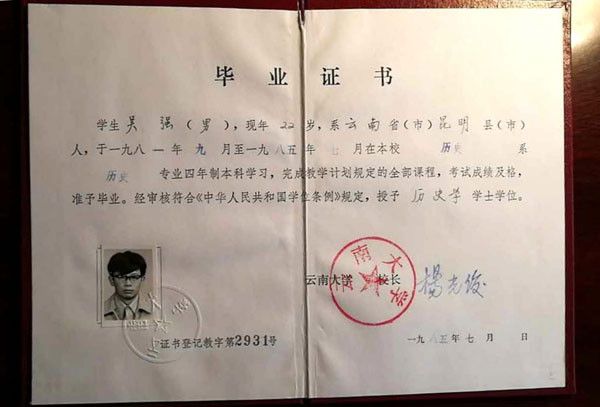 毕业证书
学生吴强(男),现年22岁,系云南省(市)昆明县(市)
人,于一九八一年九月至一九八五年七月在本校历史系
历史专业四年制本科学习,完成教学计划规定的全部课程,考试成绩及格,
准予毕业。经审核符合《中华人民共和国学位条例》规定,授予历史学学士学位。
云南大学
云南大学 校长 杨光俊
证书登记教字第2931号
一九八五年七月 日